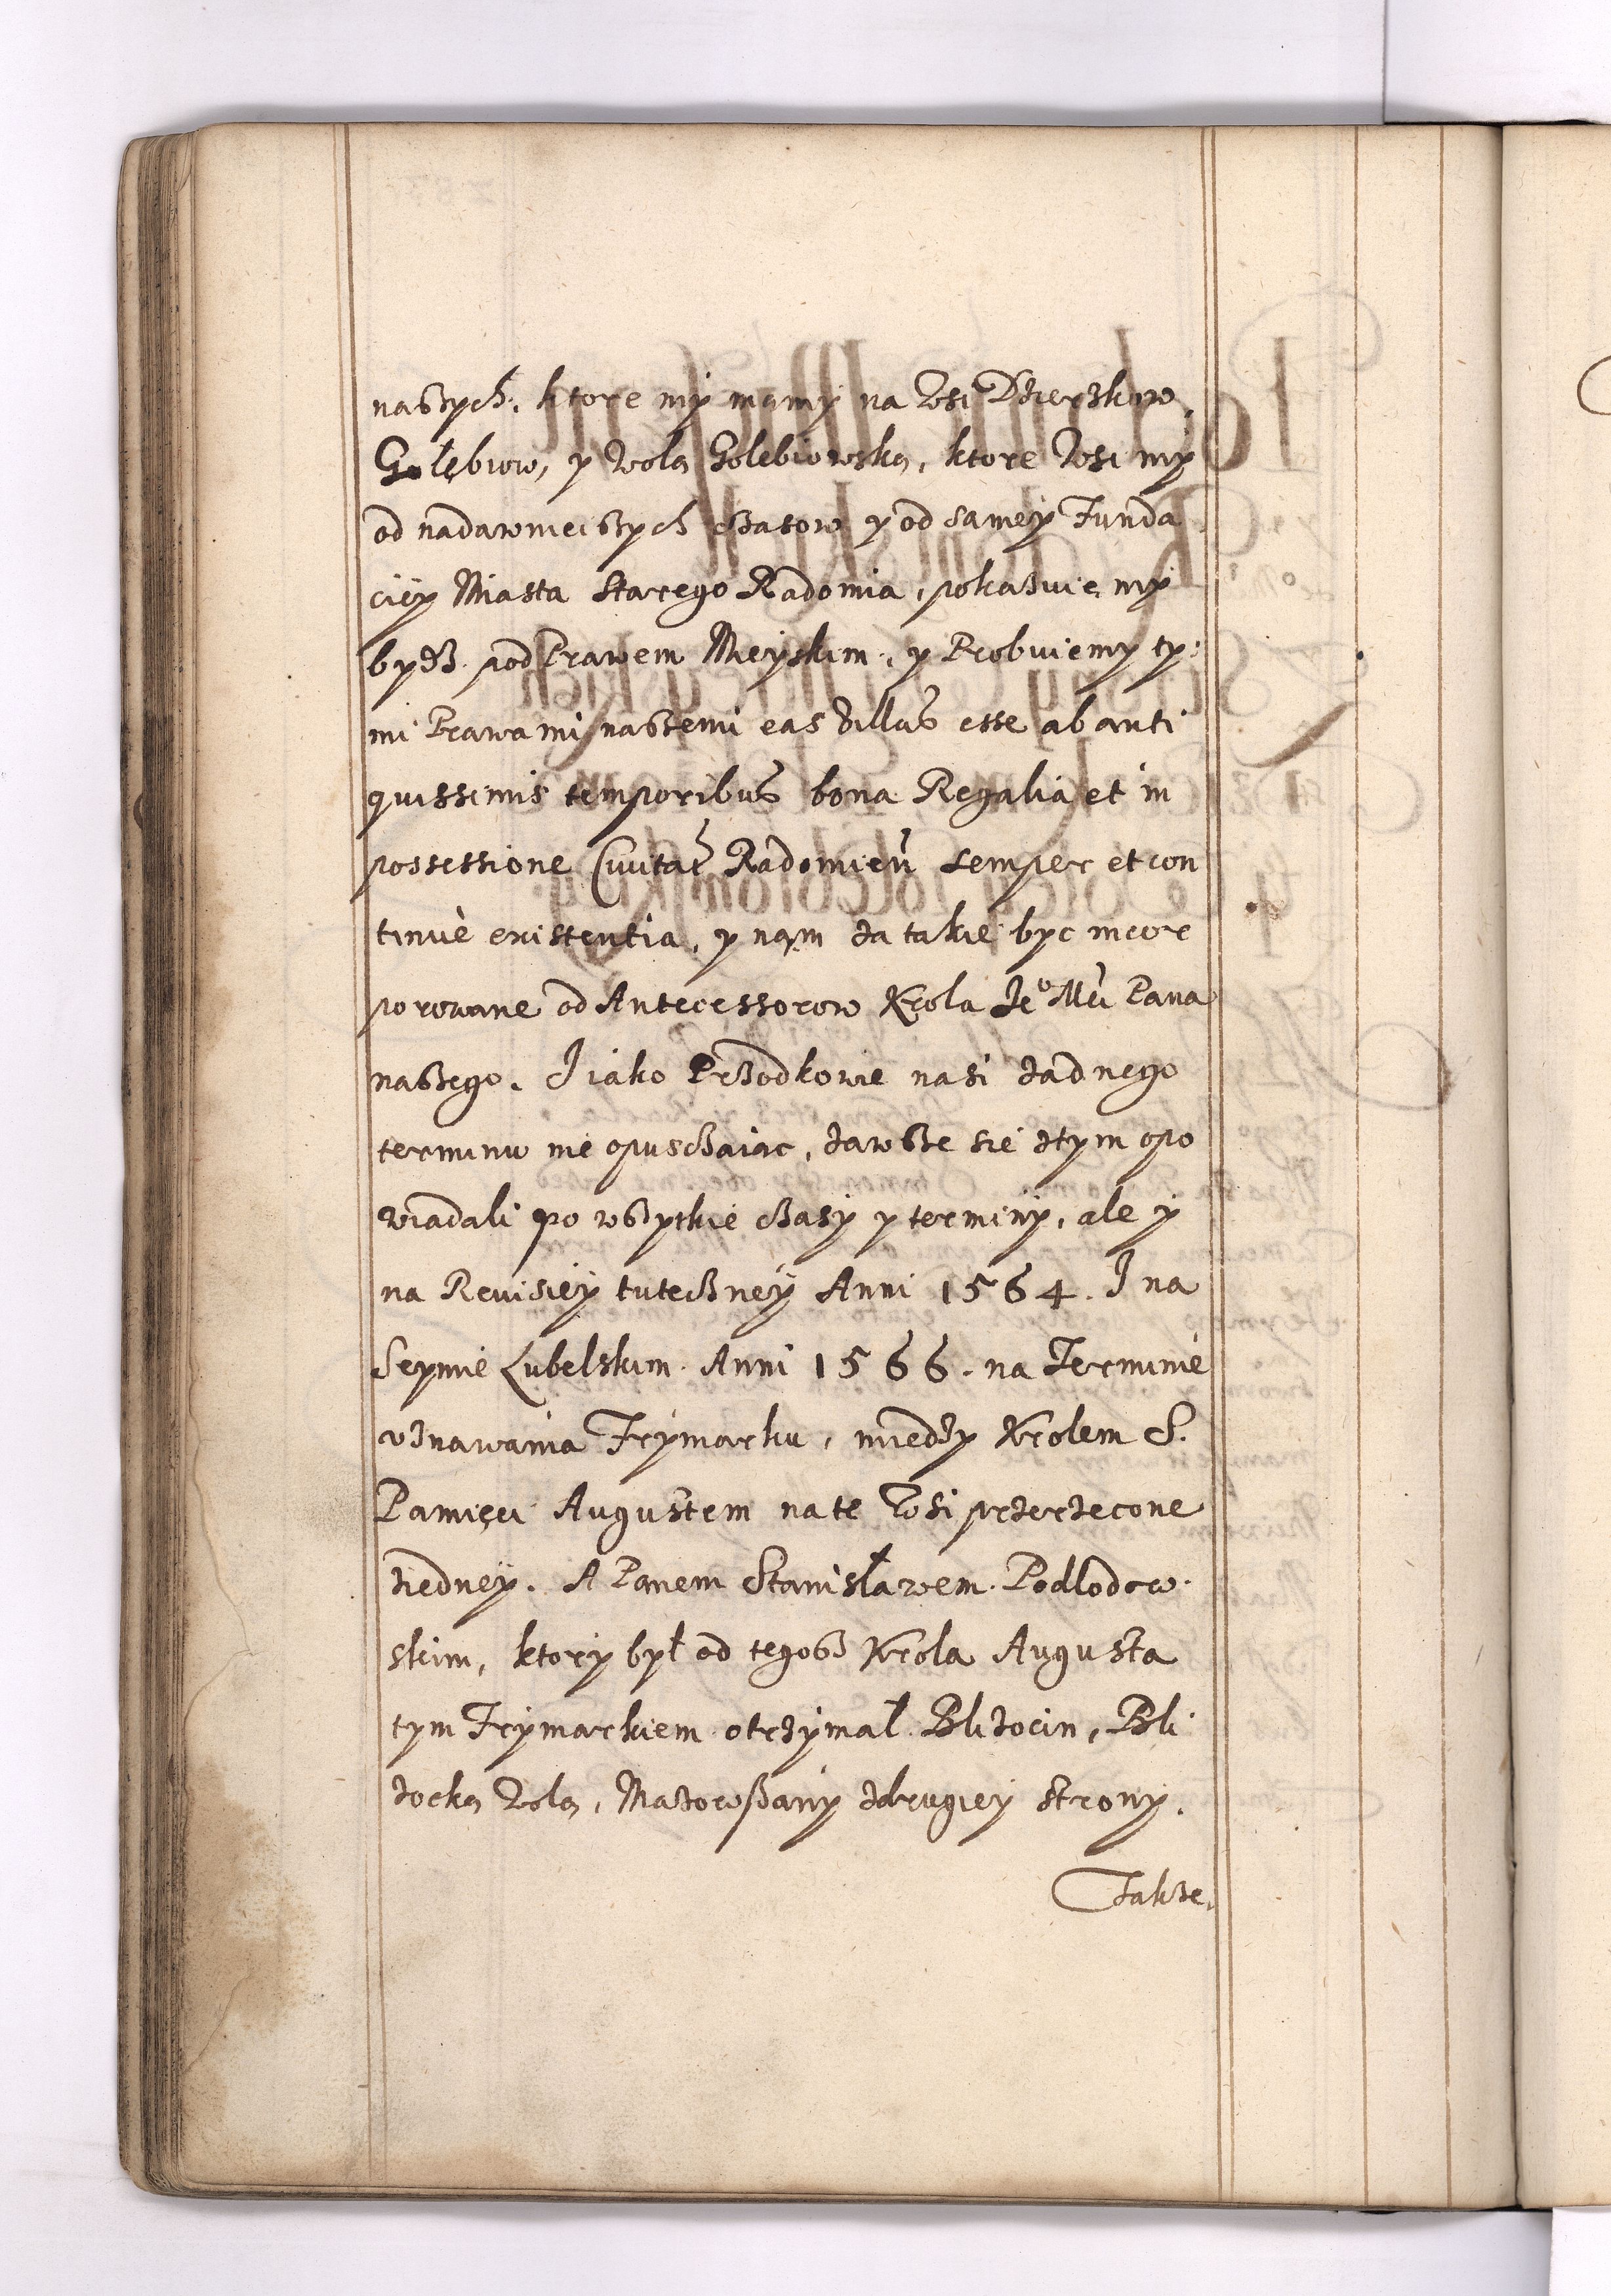 naszych. ktore my mamy na Wsi Dzierzkow,
Golębiow, y Wolą Golebiowską, ktore Wsi my
od nadawnieiszych czasow y od samey Funda
ciey Miasta Starego Radomia, pokazuie my
bydz pod Prawem Mieyskim, y Probuiemy ty:
mi Prawami naszemi eas Villas esse ab anti
quissimis temporibus bona Regalia et in
possessione Civitat Radomien semper et con
tinuè existentia, y nąm za takie byc incor
porowane od Antecessorow Krola Jeo Mci Pana
naszego. J iako Przodkowie nasi zadnego
terminu nie opusczaiac, zawsze sie ztym opo
wiadali po wszytkie czasy y terminy, ale y
na Revisiey tuteczney Anni 1564. J na
Seymie Lubelskim Anni 1566. na Terminie
uznawania Frymarku, miedzy Krolem S.
Pamięci Augustem na te Wsi przerzecone
ziedney. A Panem Stanisławem Podlodow.
skim, ktory był od tegosz Krola Augusta
tym Frymarkiem otrzymał Blizocin, Bli
zocką Wolą, Mazowszany zdrugiey strony.
Takze.